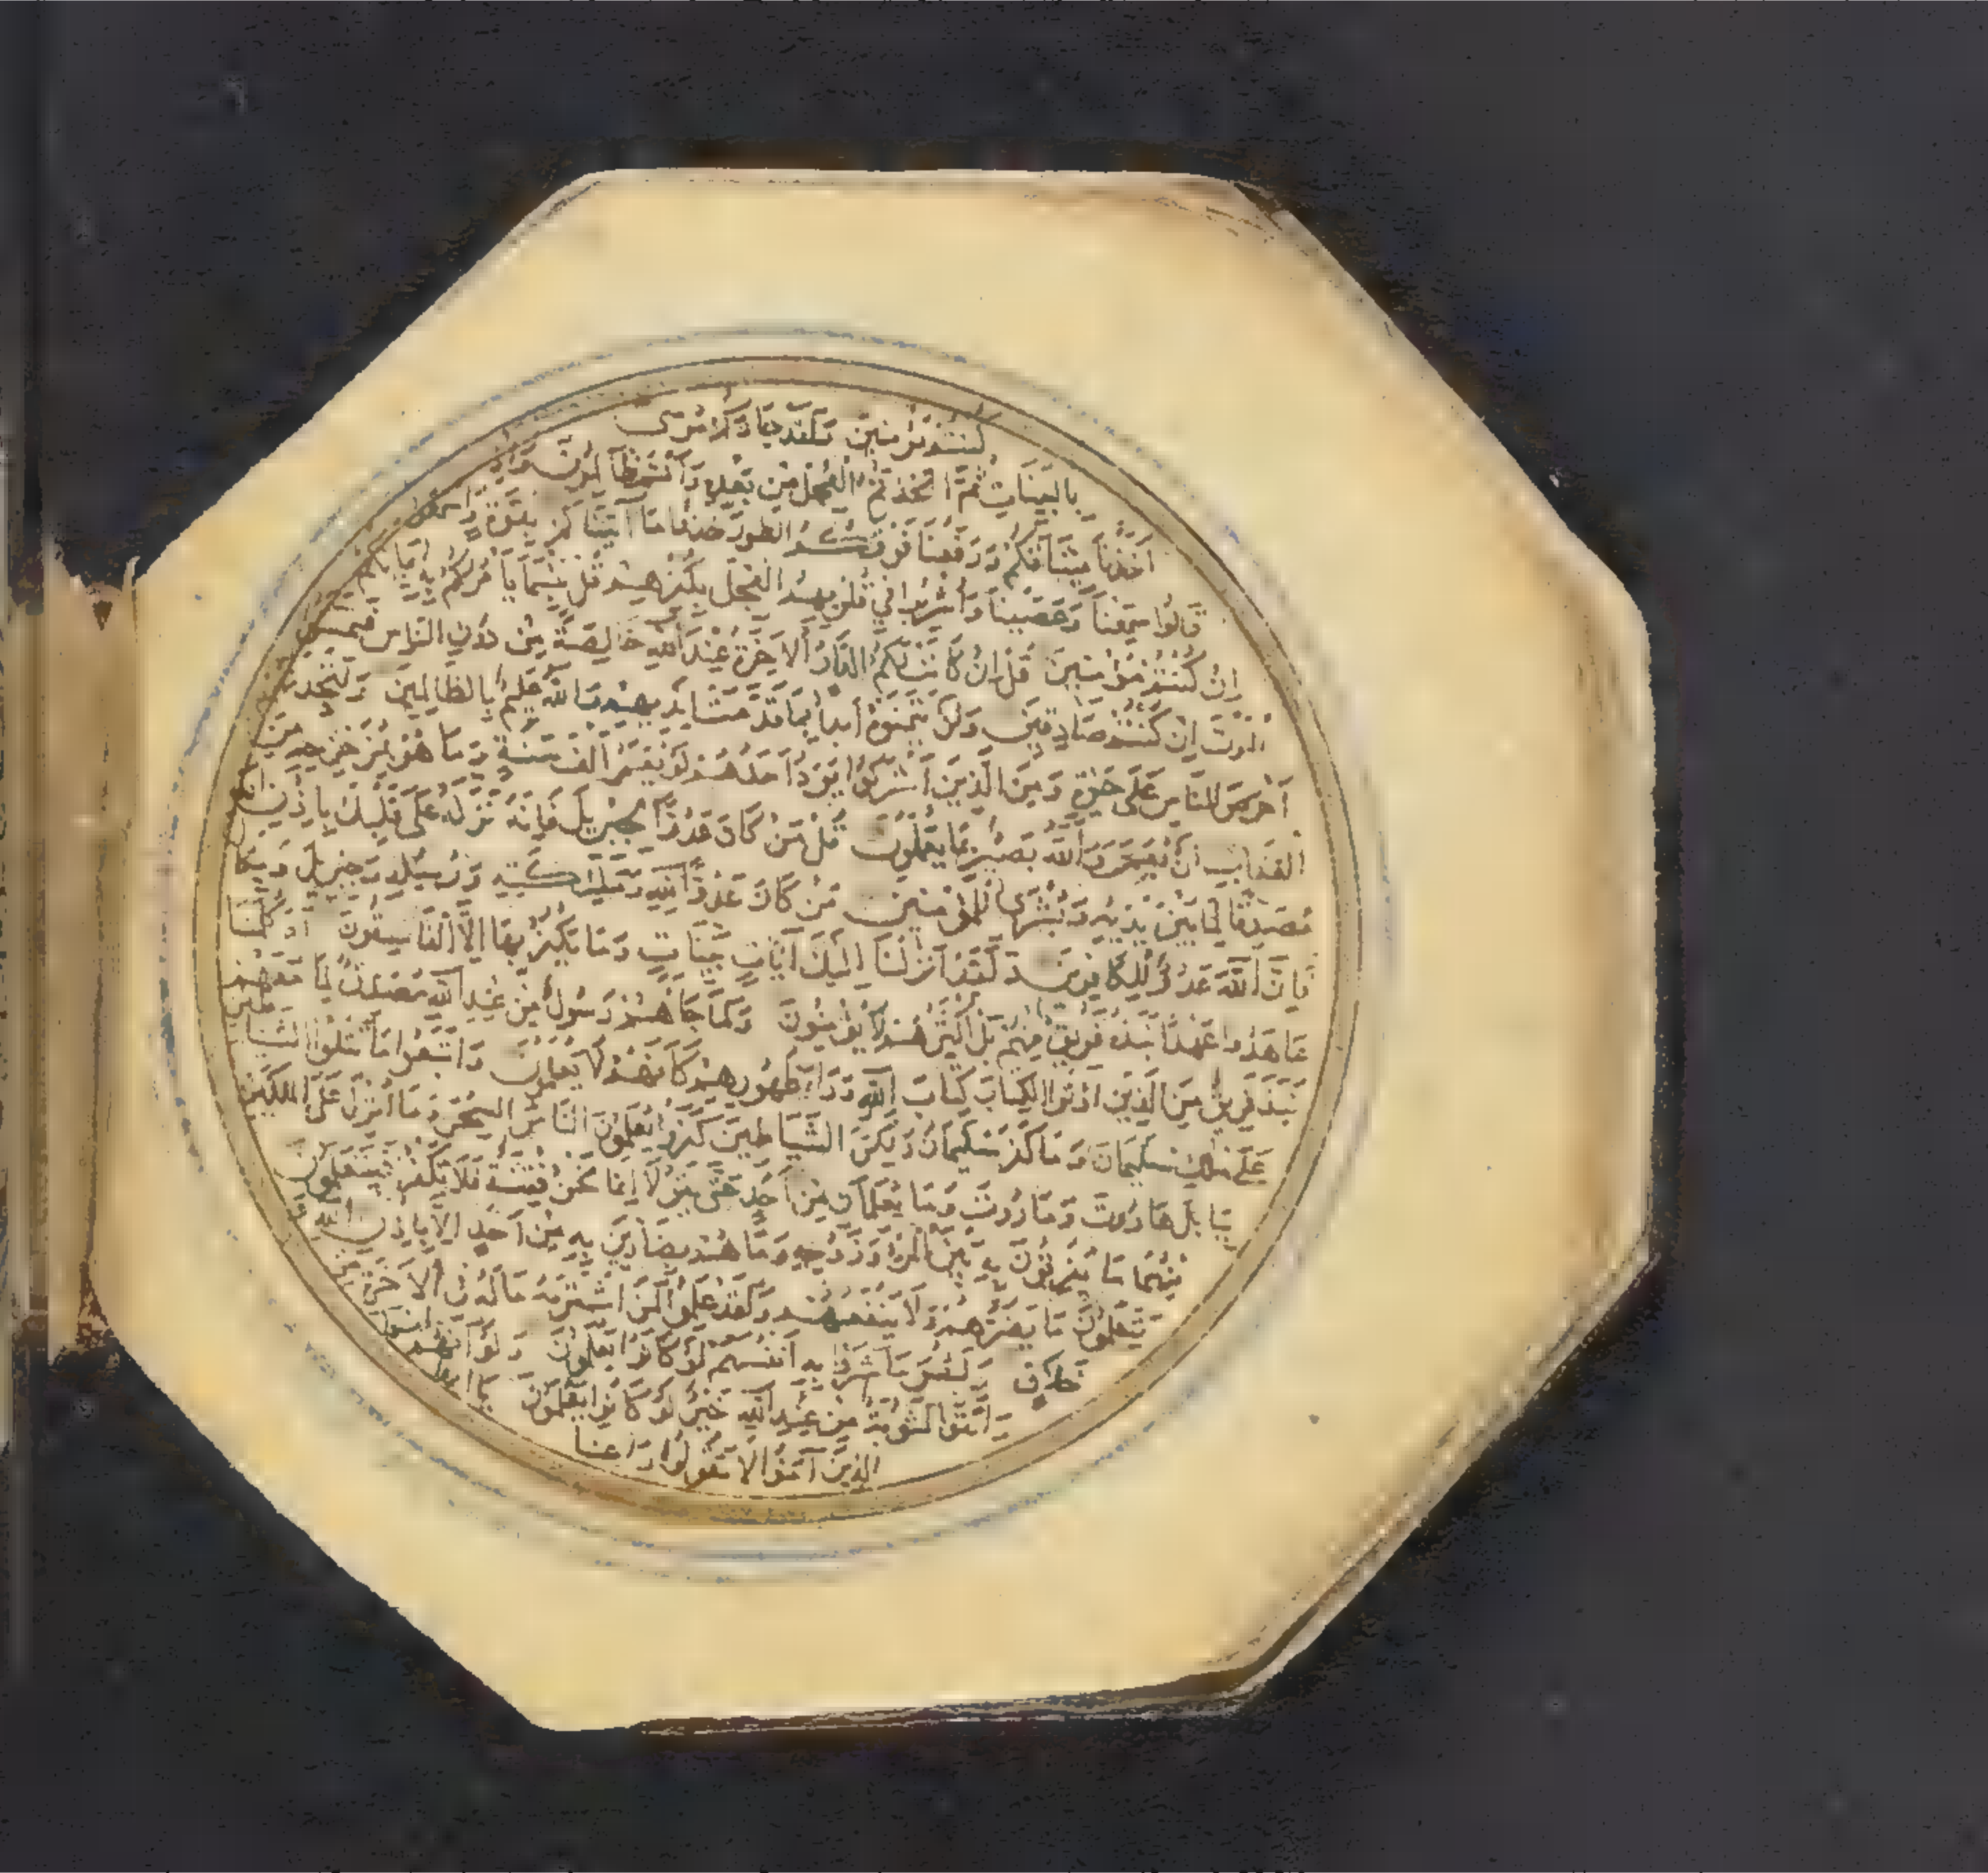 كنتم مؤمنين ولقد جاءكم موسى
بالبينات ثم اتخذتم العجل من بعده وانتم ظالمون واذ
اخذنا ميثاقكم ورفعنا فوقكم الطور خذوا ما آتيناكم بقوة واسمعوا
قالوا سمعنا وعصينا واشربوا في قلوبهم العجل بكفرهم قل بئسما يأمركم به ايمانكم
ان كنتم مؤمنين قل ان كانت لكم الدار الاخرة عند الله خالصة من دون الناس فتمنوا
الموت ان كنتم صادقين ولن يتمنوه أبدا بما قدمت ايديهم والله عليم بالظالمين ولتجدنهم
أحرص الناس على حيوة ومن الذين أشركوا يود أحدهم لو يعمر الف سنة وما هو بمزحزحه من
العذاب ان يعمر والله بصير بما يعملون قل من كان عدوا لجبريل فانه نزله على قلبك باذن الله
مصدقا لما بين يديه وبشرى للمؤمنين من كان عدوا لله وملئكته ورسله وجبريل وميكال
فان الله عدو للكافرين ولقد انزلنا اليك آيات بينات وما يكفر بها الا الفاسقون أوكلما
عاهدوا عهدا نبذه فريق منهم بل اكثرهم لا يؤمنون ولما جاءهم رسول من عند الله مصدق لما معهم
نبذ فريق من الذين اوتوا الكتاب كتاب الله وراء ظهورهم كأنهم لا يعلمون واتبعوا ما تتلوا الشياطين
على ملك سليمان وما كفر سليمان ولكن الشياطين كفروا يعلمون الناس السحر وما انزل على الملكين
ببابل هاروت وماروت وما يعلمان من احد حتى يقولا إنما نحن فتنة فلا تكفر فيتعلمون
منهما ما يفرقون به بين المرء وزوجه وما هم بضارين به من احد الا باذن الله و
يتعلمون ما يضرهم ولا ينفعهم ولقد علموا لمن اشتريه ما له في الاخرة من
خلاق ولبئس ما شروا به انفسهم لو كانوا يعلمون ولو انهم امنوا
واتقوا لمثوبة من عند الله خير لو كانوا يعلمون يا ايها
الذين آمنوا لا تقولوا راعنا